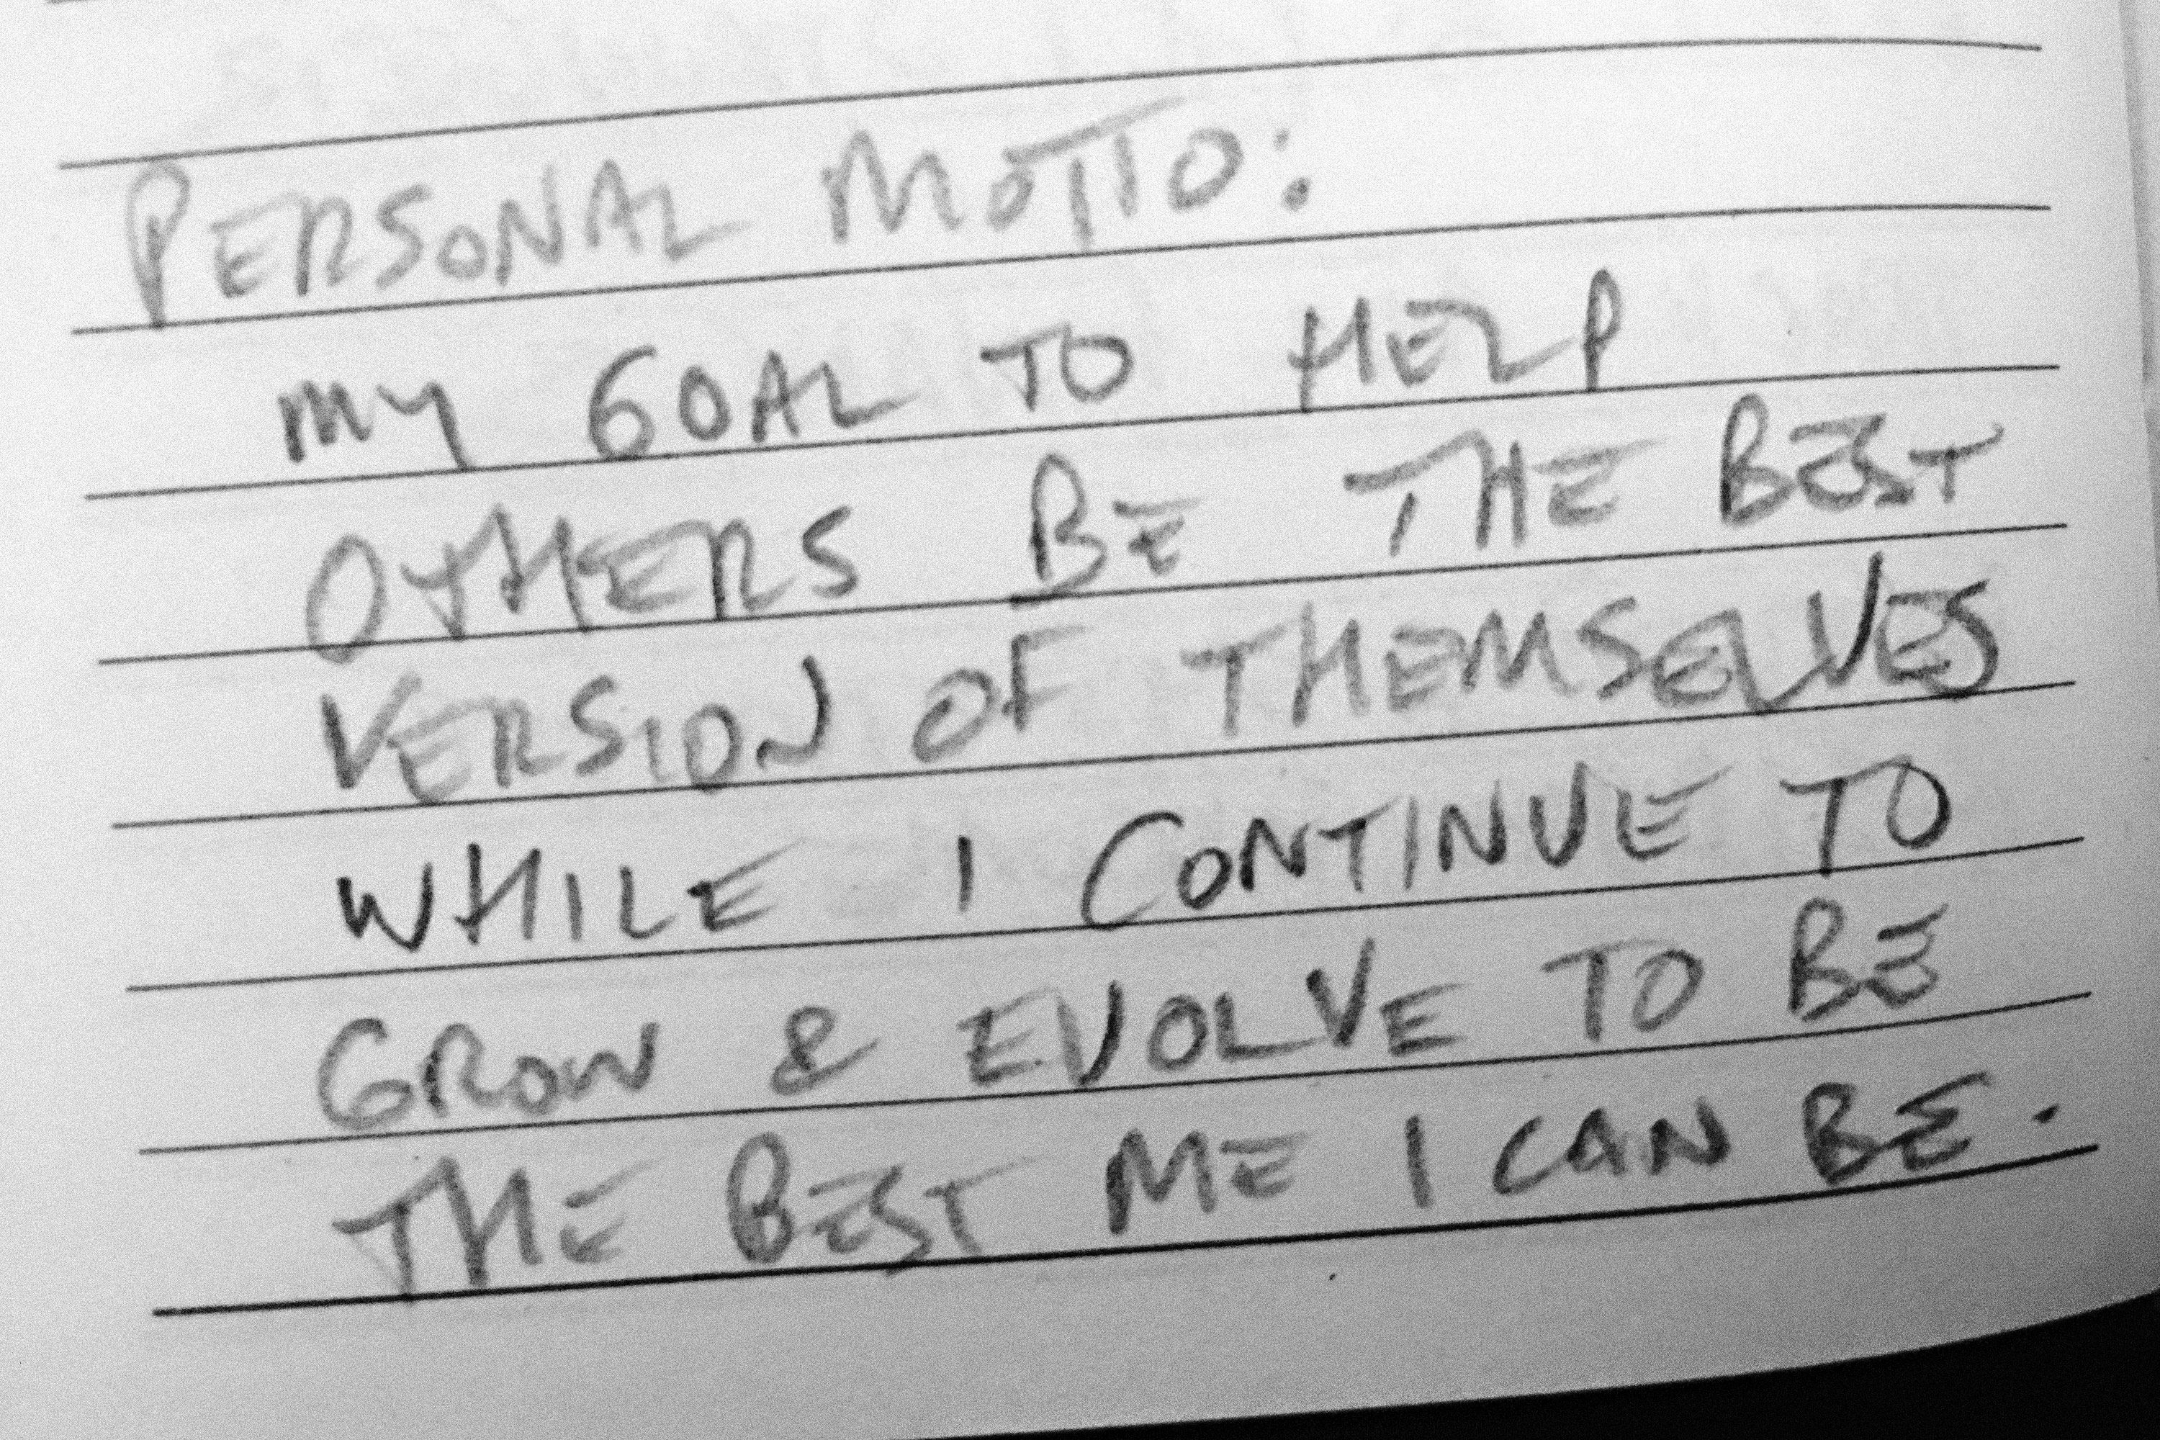 PERSONAL MOTTO:
MY GOAL TO HELP
OTHERS BE THE BEST
VERSION OF THEMSELVES
WHILE I CONTINUE TO
GROW & EVOLVE TO BE
THE BEST ME I CAN BE.